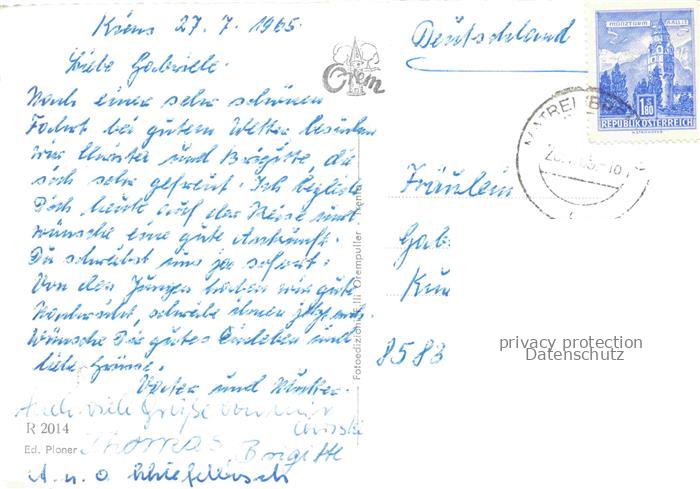 Kiens 27. 7. 1965.
Liebe Gabriele.
Nach einer sehr schönen
Fahrt bei gutem Wetter besuchen
wir Christer und Brigitte, die
sich sehr gefreut. Ich begleite
Dich heute auf der Reise und
wünsche eine gute Ankunft.
Du schreibst uns ja sofort.
Von den Jungen haben wir gute
Nachricht, schreibe ihnen jetzt
Wünsche Dir gutes Einleben und
liebe Grüsse.
Vater und Mutter.
Auch viele Grüße von
Thomas, Brigitte
R 2014
Ed. Ploner
Fotoedizioni F.lli Orempuller - Trento
Orem
Deutschland
MÜNZTURM HALL I.T.
1.80
S
REPUBLIK ÖSTERREICH
MATREI
Fräulein
Gab
Kun
8583
privacy protection
Datenschutz